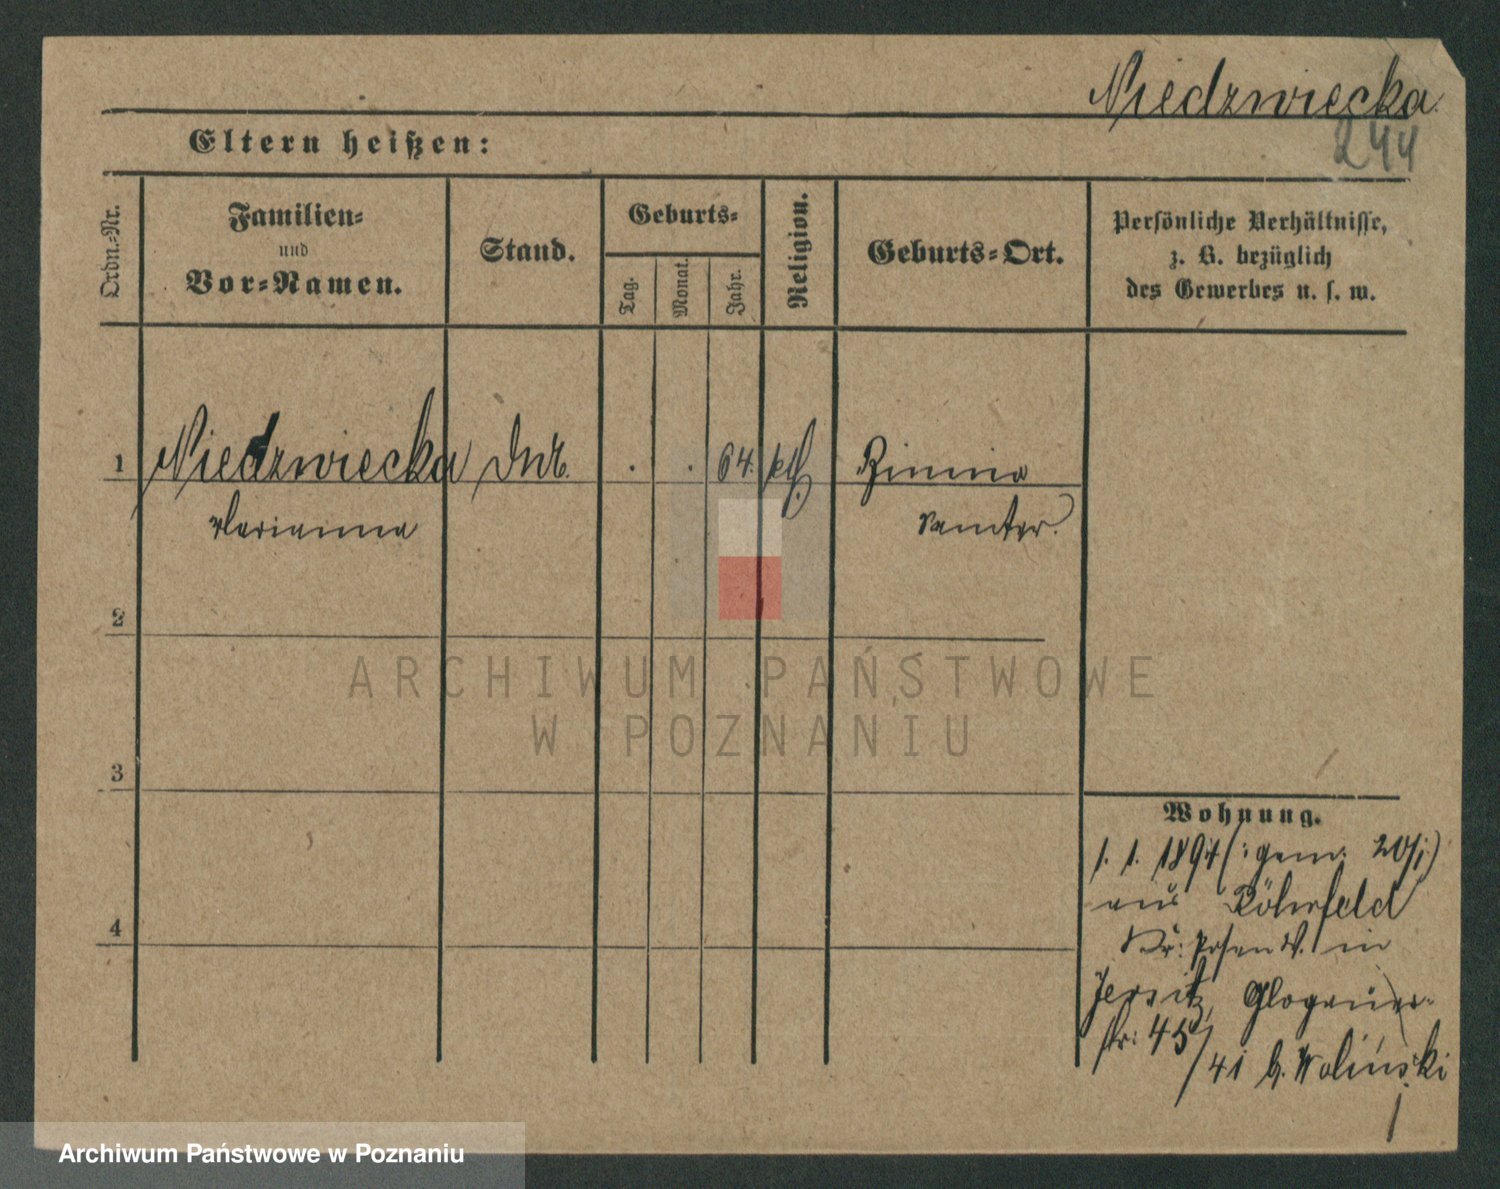 Niedzwiecka
244
Eltern heißen:
Ordn.-Nr.
Familien-
und
Vor-Namen.
Stand.
Geburts-
Tag.
Monat.
Jahr.
Religion.
Geburts-Ort.
Persönliche Verhältnisse,
z. B. bezüglich
des Gewerbes u. s. w.
1 Niedzwiecka . . 64. kth.
Marianna Samter.
2
ARCHIWUM PAŃSTWOWE
W POZNANIU
3
4
Wohnung.
1. 1. 1894 (: gem. 20/1)
aus Röhrfeld
Kr: Posen W. in
Jersitz, Glogauer-
str: 45/41 b. Wolinski
Archiwum Państwowe w Poznaniu